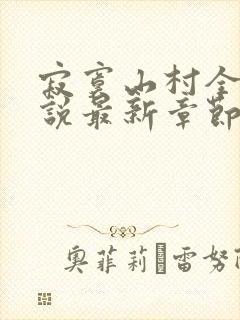 寂寞山村全
說最新章節
奧菲莉 雷努